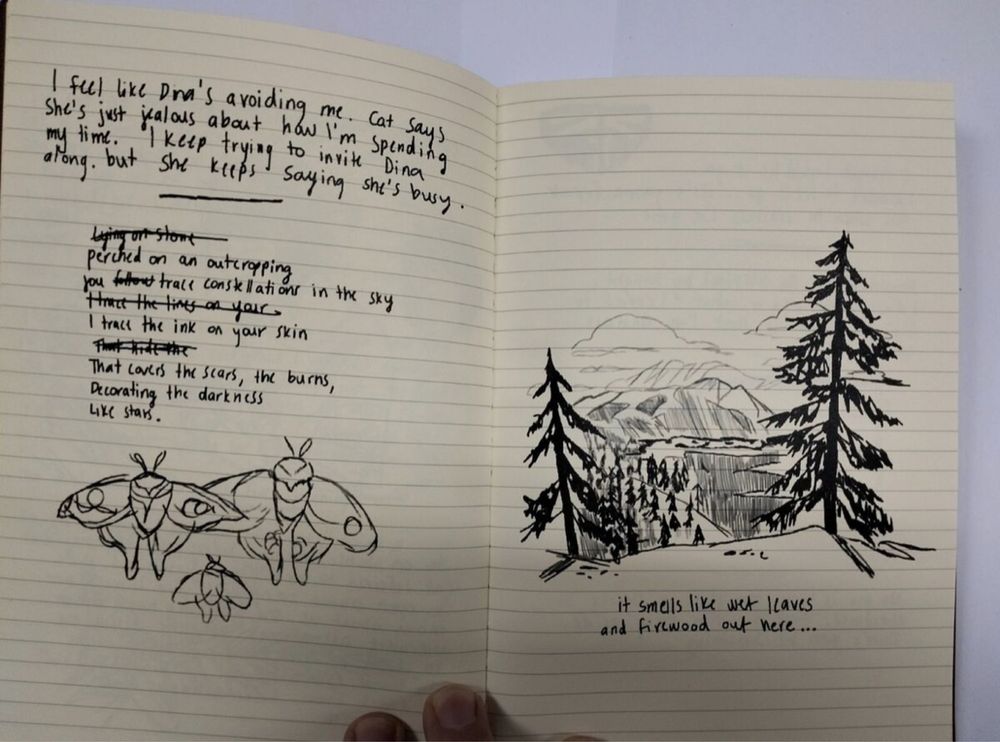 I feel like Dina's avoiding me. Cat says
She's just jealous about how I'm spending
my time. I keep trying to invite Dina
along. but she keeps saying she's busy.
Lying on stone
perched on an outcropping
you follow trace constellations in the sky
I trace the lines on your
I trace the ink on your skin
That hide the
That covers the scars, the burns,
Decorating the darkness
Like stars.
it smells like wet leaves
and firewood out here...